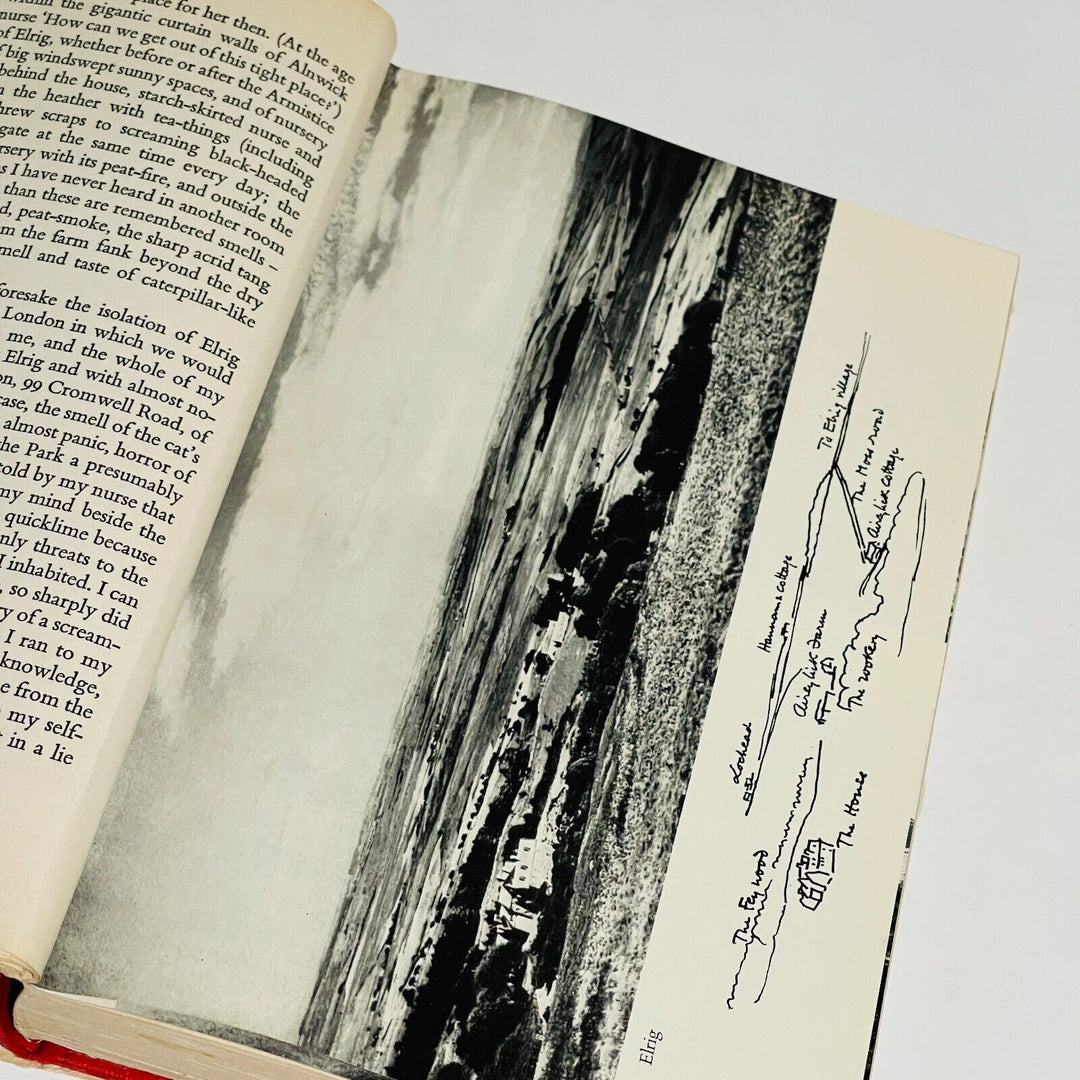 place for her then. (At the age
within the gigantic curtain walls of Alnwick
nurse ‘How can we get out of this tight place?’)
of Elrig, whether before or after the Armistice
big windswept sunny spaces, and of nursery
behind the house, starch-skirted nurse and
the heather with tea-things (including
threw scraps to screaming black-headed
gate at the same time every day; the
nursery with its peat-fire, and outside the
as I have never heard in another room
than these are remembered smells –
peat-smoke, the sharp acrid tang
from the farm fank beyond the dry
smell and taste of caterpillar-like
foresake the isolation of Elrig
London in which we would
me, and the whole of my
Elrig and with almost no-
99 Cromwell Road, of
case, the smell of the cat’s
almost panic, horror of
the Park a presumably
told by my nurse that
my mind beside the
quicklime because
only threats to the
I inhabited. I can
so sharply did
of a scream-
I ran to my
knowledge,
from the
my self-
in a lie
To Elrig village
The Moss road
Airyhick Cottage
Hannam's cottage
Airyhick Farm
The rookery
Lochead
The House
The Fey wood
Elrig